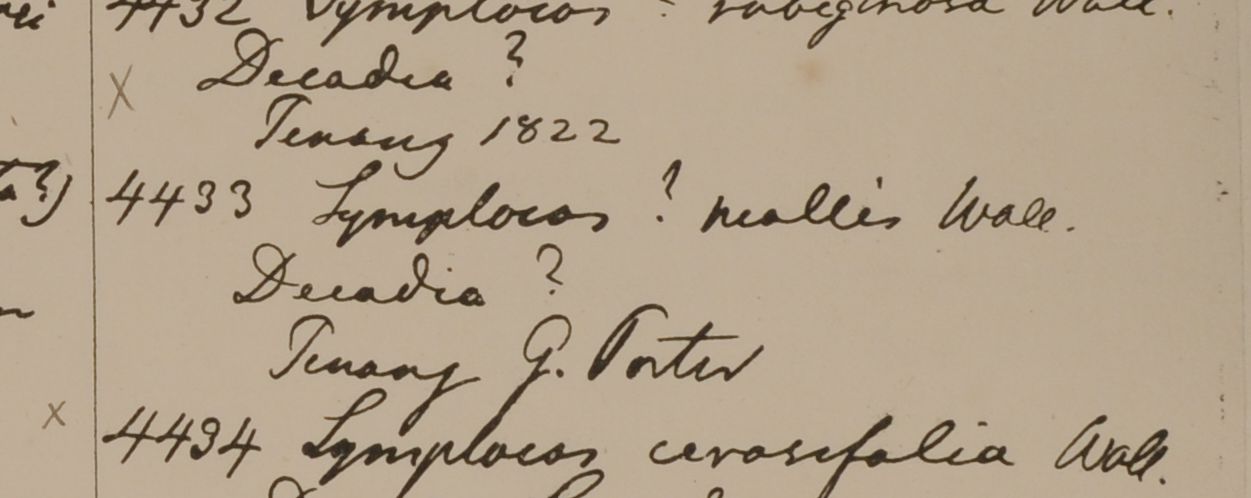 4432 Symplocos ? rubiginosa Wall.
Decadia ?
Penang 1822
4433 Symplocos ? mollis Wall.
Decadia ?
Penang G. Porter
4434 Symplocos cerasifolia Wall.